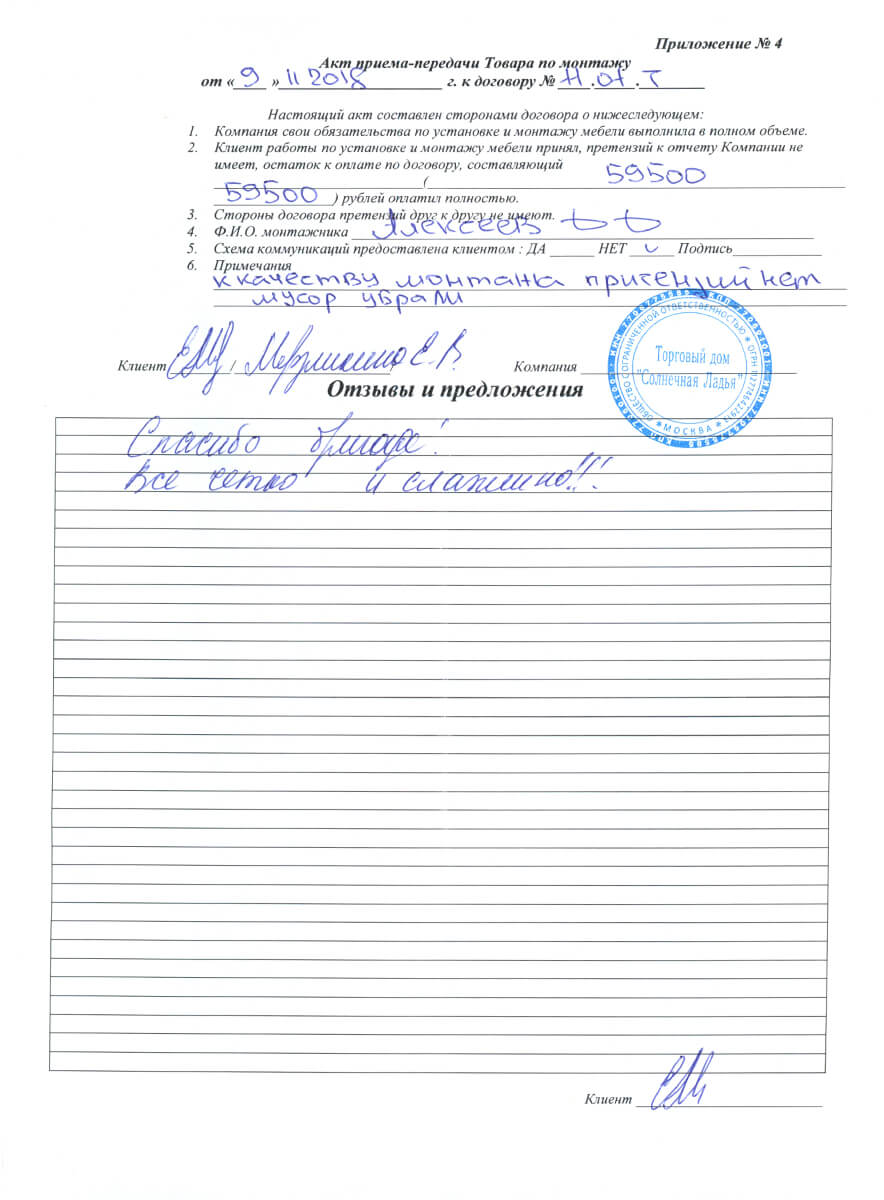 Приложение № 4
Акт приема-передачи Товара по монтажу
от « 9 » 11 2018 г. к договору № 11.01.Т
Настоящий акт составлен сторонами договора о нижеследующем:
1. Компания свои обязательства по установке и монтажу мебели выполнила в полном объеме.
2. Клиент работы по установке и монтажу мебели принял, претензий к отчету Компании не
имеет, остаток к оплате по договору, составляющий
( 59500
59500 ) рублей оплатил полностью.
3. Стороны договора претензий друг к другу не имеют.
4. Ф.И.О. монтажника Алексеев
5. Схема коммуникаций предоставлена клиентом : ДА НЕТ v Подпись
6. Примечания
к качеству монтажа притензий нет
мусор убрали
Клиент / Е. В.
Компания
Торговый дом
"Солнечная Ладья"
ОБЩЕСТВО С ОГРАНИЧЕННОЙ ОТВЕТСТВЕННОСТЬЮ
МОСКВА
Отзывы и предложения
Спасибо бригаде!
Все четко и слаженно!!!
Клиент